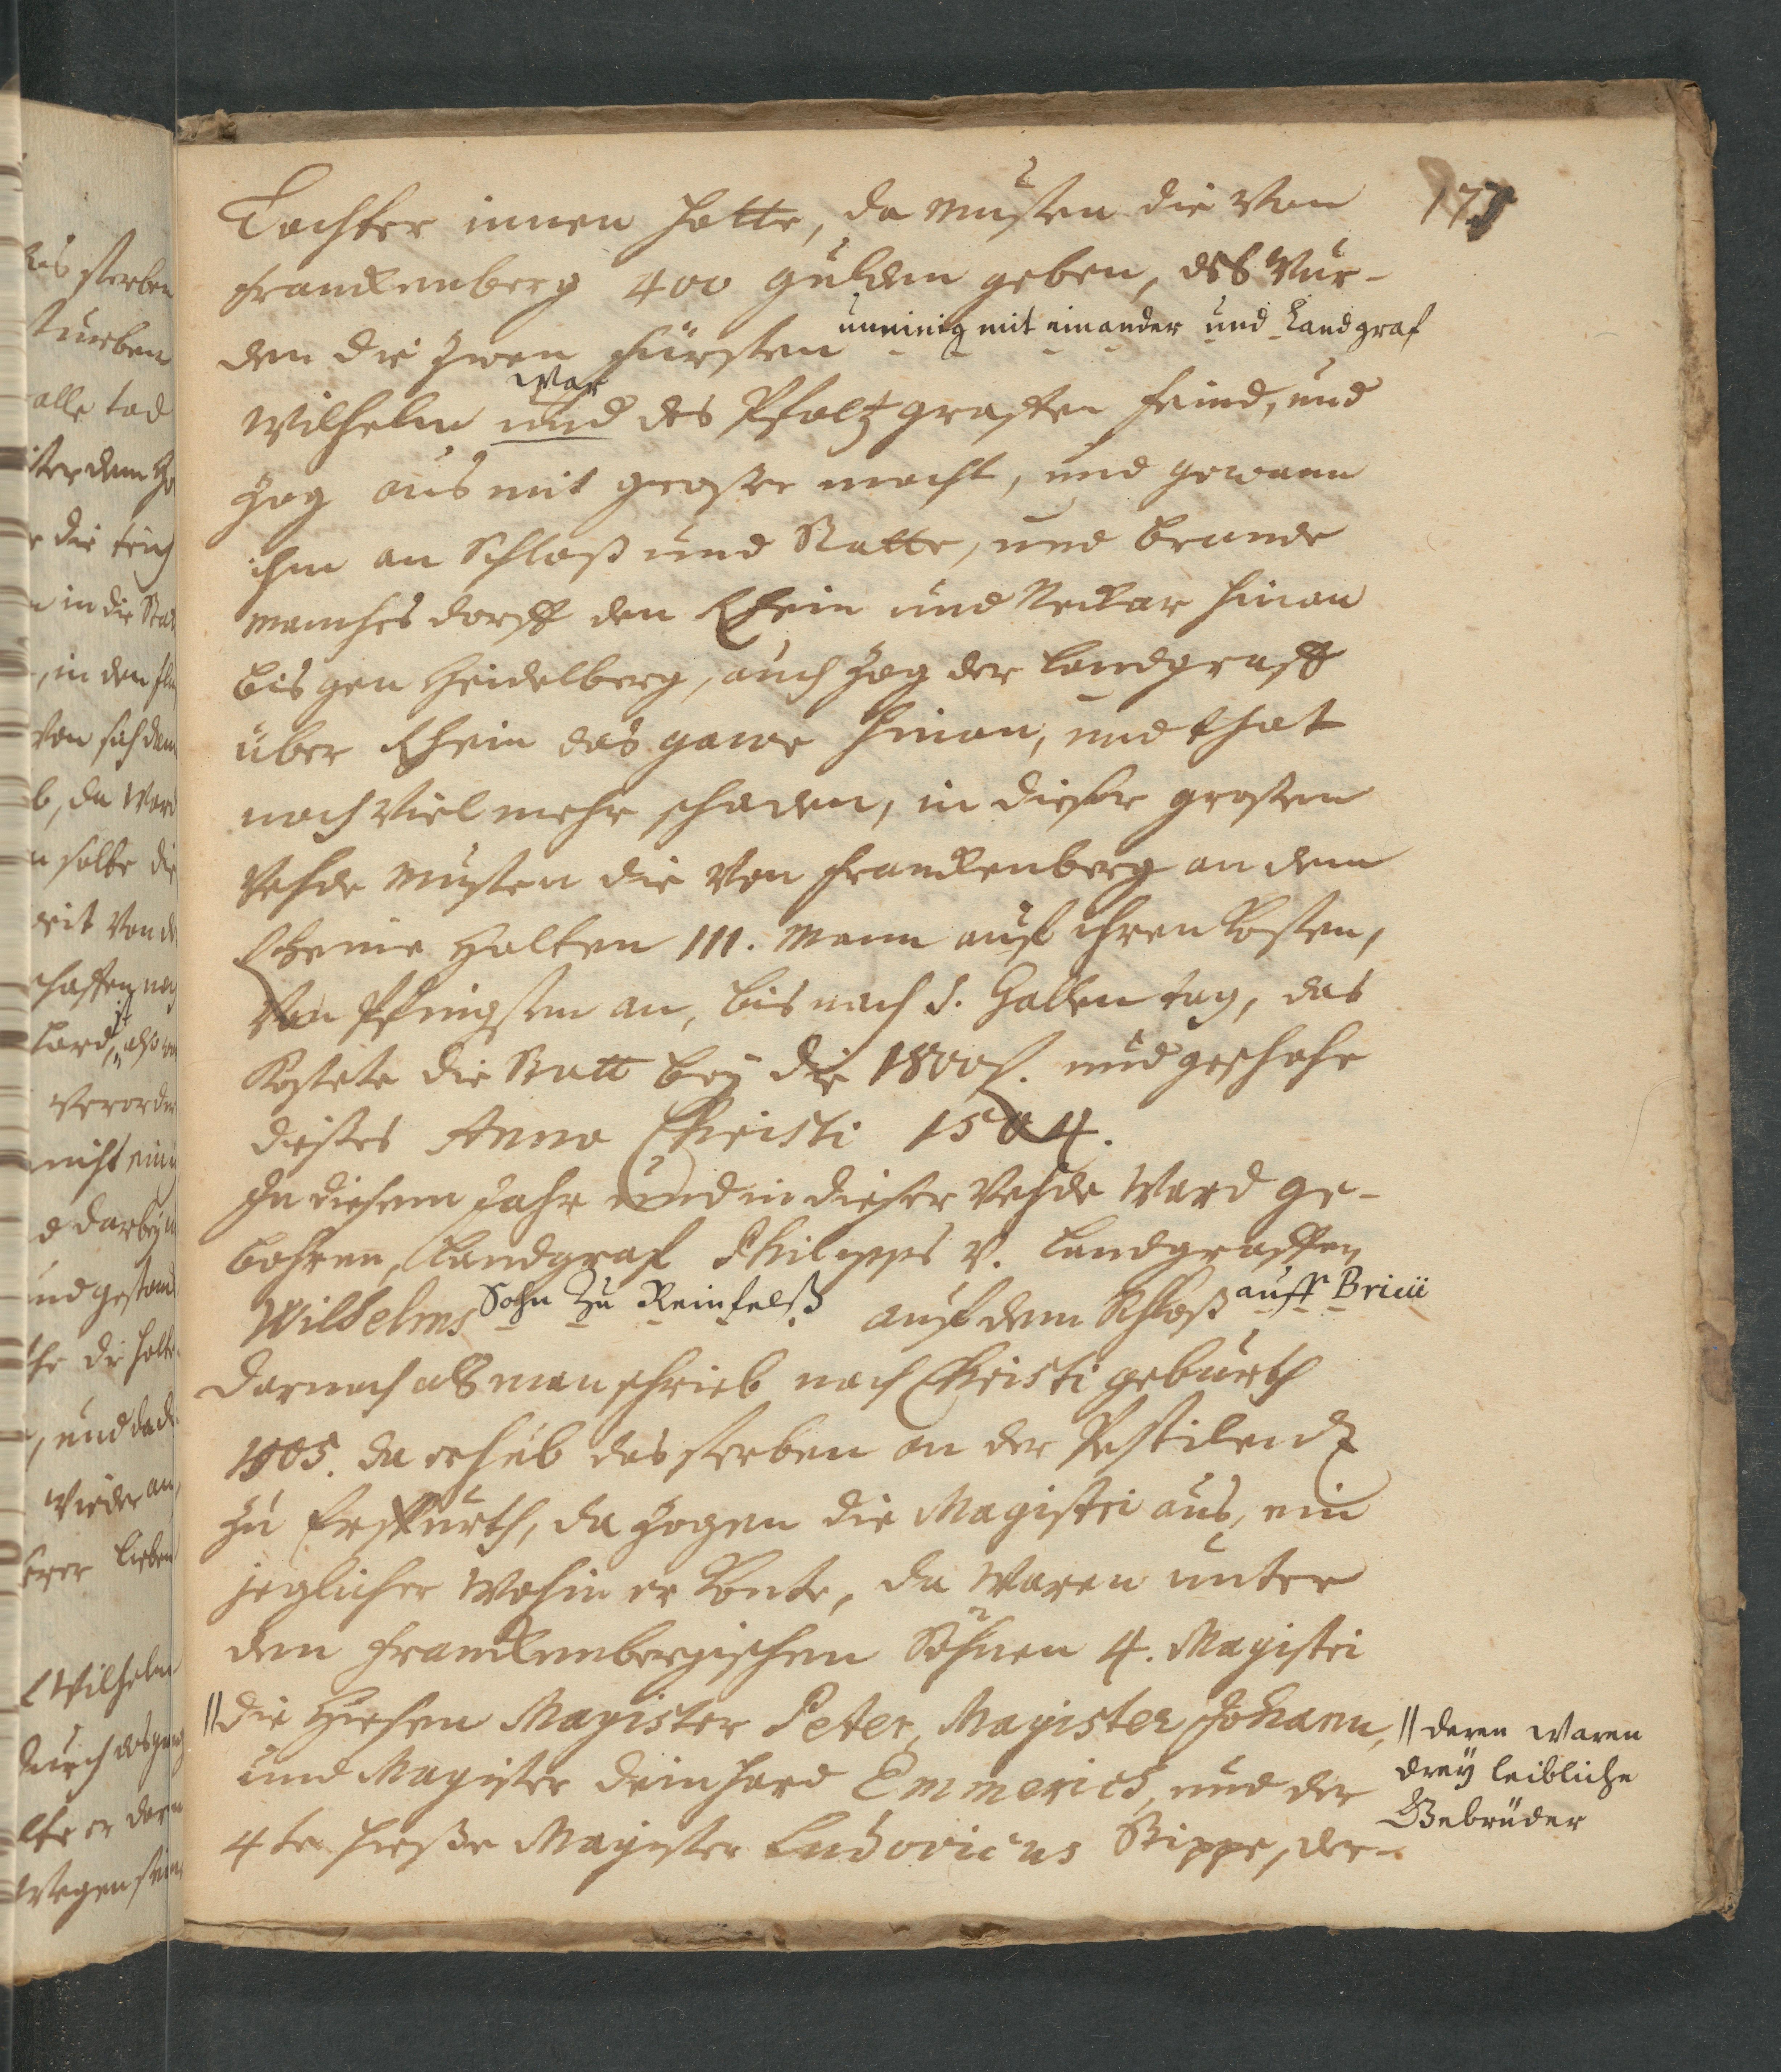 175
Tochter innen hatte, da musten die von
Franckenberg 400 gulden geben, deß wur-
den die zwen Fürsten uneinig mit einander und Landgraf
Wilhelm und war des Pfaltzgraffen feind, und
zog aus mit grosser macht, und gewann
ihm an Schloß und Statte, und brande
manches dorff den Rhein und Neckar hinan
bis gen Heidelberg, auch zog der Landgraff
über Rhein das gawe hinan, und that
noch viel mehr schaden, in dieser grossen
Vehde musten die von Franckenberg an dem
Rheine halten 111. Mann auf ihren Kosten,
Von Pfingsten an, bis nach S. Gallen tag, das
Kostete die Statt bey die 1800 f. und geschahe
dieses Anno Christi 1504.
In diesem Jahr und in dieser Vehde ward ge-
bohren, Landgraf Philipps v. Landgraffen
Wilhelms Sohn zu Reinfelß auf dem Schloß auff Bricii
Darnach alß man schrieb nach Christi geburth
1505. da erhub das sterben an der Pestilendz
zu Erffurth, da zogen die Magistri aus, ein
jeglicher wohin er konte, da waren unter
den Franckenbergischen Söhnen 4. Magistri
|| die hiesen Magister Peter, Magister Johann,
und Magister Deinhard Emmerich, und der
4te hieße Magister Ludovicus Stippe, der-
|| deren waren
drey leibliche
Gebrüder